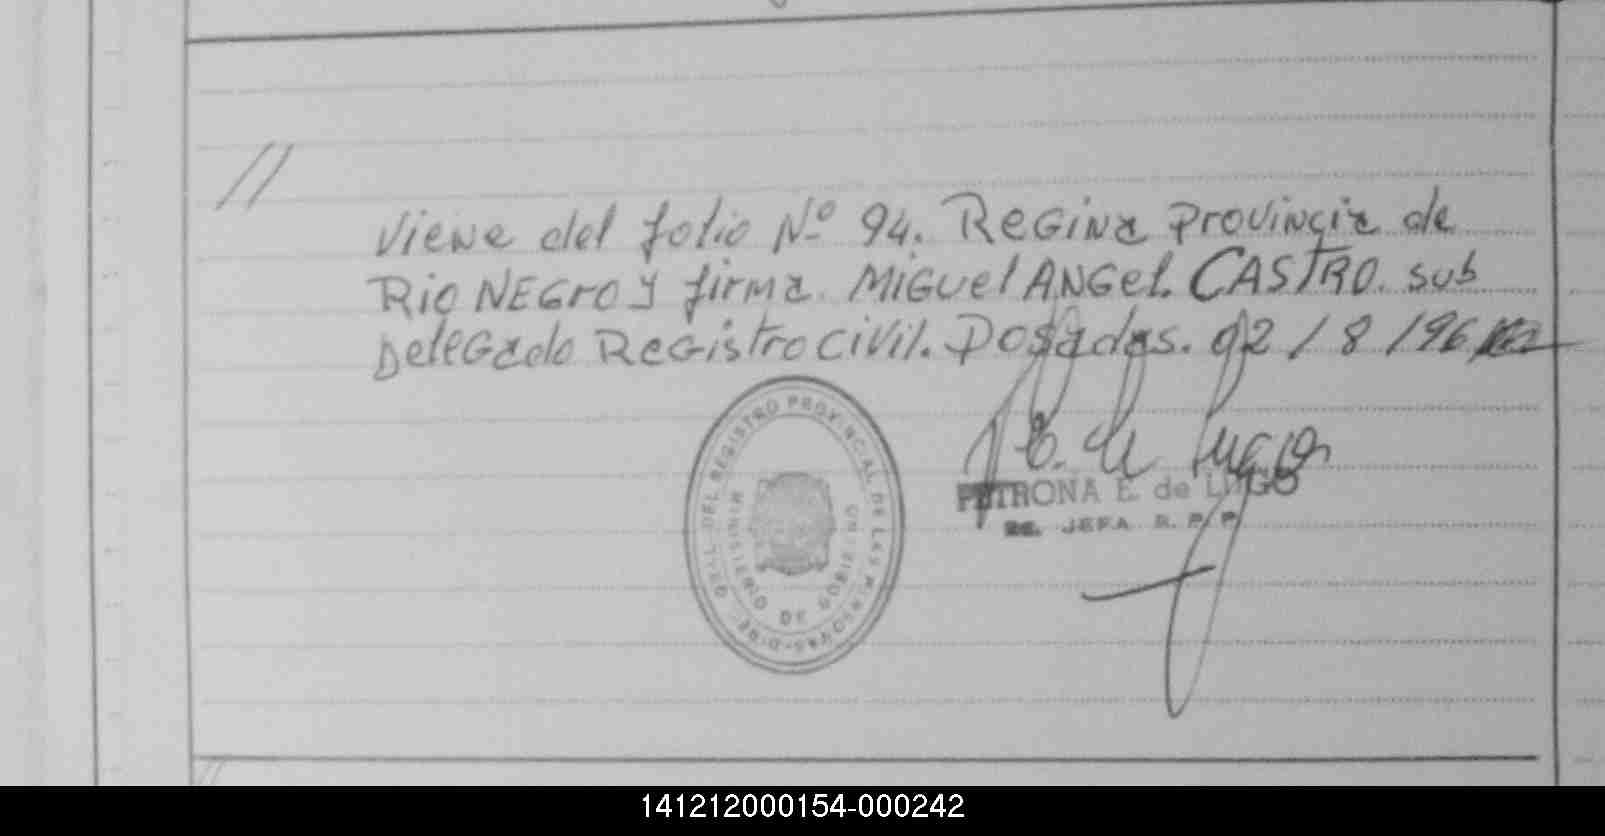 //
Viene del folio Nº 94. Regina Provincia de
Rio Negro y firma. Miguel Angel. CASTRO. sub
Delegado Registro Civil. Posadas. 02/8/96
P.E. de Lugo
PETRONA E. de LUGO
JEFA R. P. P.
DEL REGISTRO PROVINCIAL DE LAS PERSONAS
MINISTERIO DE GOBIERNO
141212000154-000242